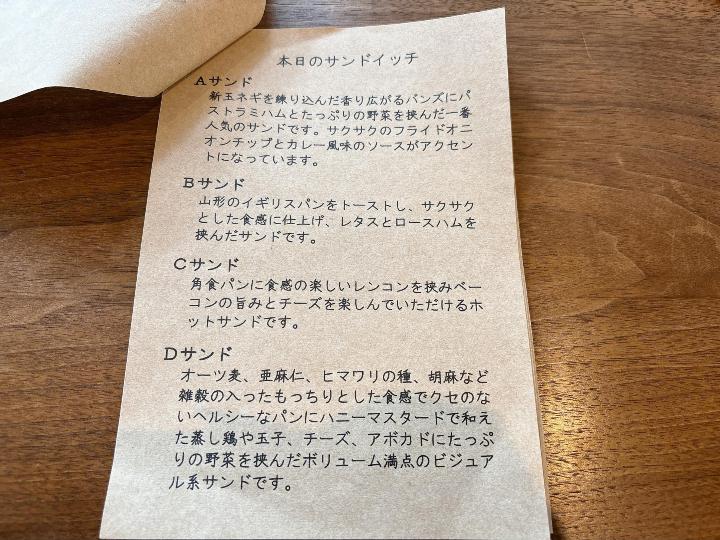 本日のサンドイッチ
Aサンド
新玉ネギを練り込んだ香り広がるバンズにパ
ストラミハムとたっぷりの野菜を挟んだ一番
人気のサンドです。サクサクのフライドオニ
オンチップとカレー風味のソースがアクセン
トになっています。
Bサンド
山形のイギリスパンをトーストし、サクサク
とした食感に仕上げ、レタスとロースハムを
挟んだサンドです。
Cサンド
角食パンに食感の楽しいレンコンを挟みベー
コンの旨みとチーズを楽しんでいただけるホ
ットサンドです。
Dサンド
オーツ麦、亜麻仁、ヒマワリの種、胡麻など
雑穀の入ったもっちりとした食感でクセのな
いヘルシーなパンにハニーマスタードで和え
た蒸し鶏や玉子、チーズ、アボカドにたっぷ
りの野菜を挟んだボリューム満点のビジュア
ル系サンドです。